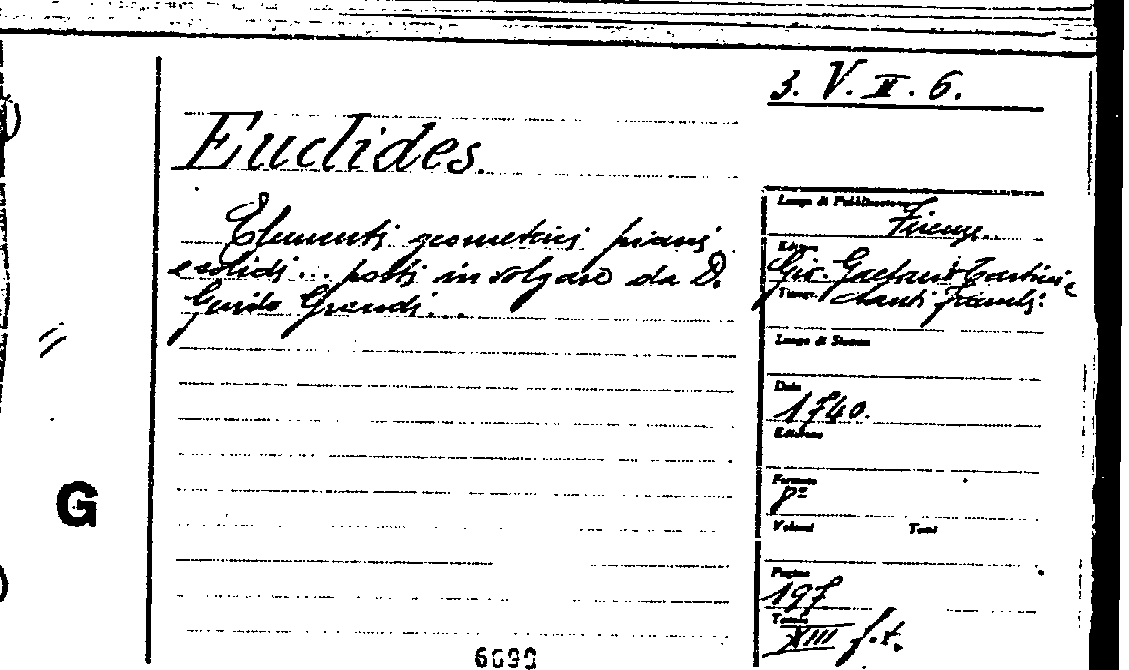 3. V. II. 6.
Euclides.
Elementi geometrici piani
e solidi... posti in volgare da D.
Guido Grandi...
Luogo di Pubblicazione
Firenze.
Editore
Gio. Gaetano Tartini e
Santi Franchi
Luogo di Stampa
Data
1740.
Edizione
Formato
8º
Volumi Tomi
Pagine
197
Tavole
XIII f.t.
G